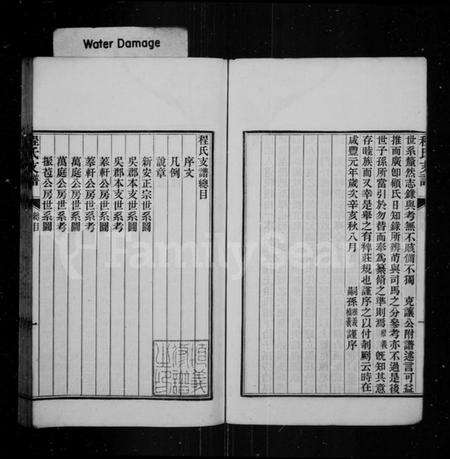 Water Damage
世系釐然志錄與考無不賅備不獨 克讓公附譜述言可益
推而廣卽顧氏日知錄所辨
與司馬之分參考亦不過是後
世子孫所當引於勿替而奉爲纂脩之準則焉
旣知其意
存睦族而又幸是舉之有裨莊規也謹序之以付剞劂云時在
咸豐元年歲次辛亥秋八月
嗣孫
謹序
程氏支譜
程氏支譜總目
序文
凡例
說章
新安正宗世系圖
吳郡本支世系圖
吳郡本支世系考
莘軒公房世系圖
莘軒公房世系考
萬庭公房世系圖
萬庭公房世系考
振苞公房世系圖
程氏支譜
總目